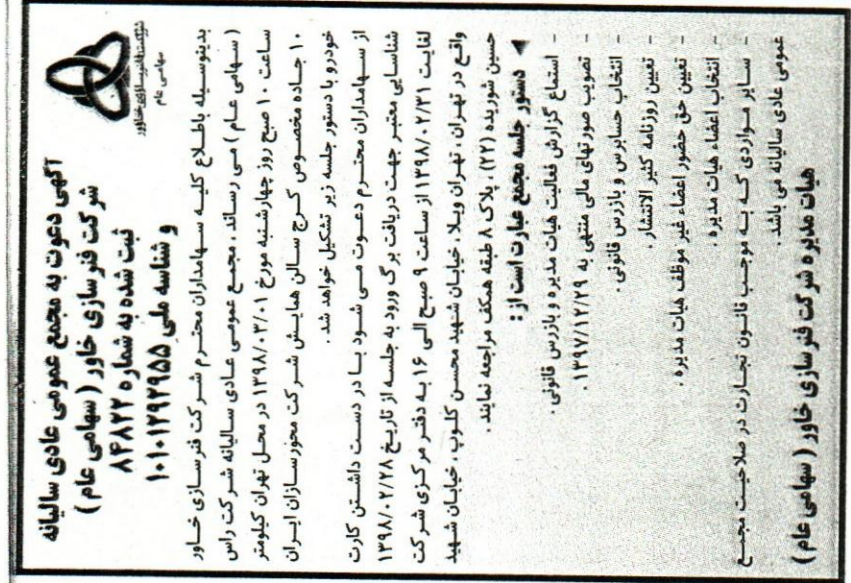 آگهی دعوت به مجمع عمومی عادی سالیانه
شرکت فنر سازی خاور ( سهامی عام )
ثبت شده به شماره ۸۴۸۲۲
و شناسه ملی ۱۰۱۰۱۲۹۲۹۵۵
شرکت فنرسازی خاور
سهامی عام
بدینوسیله باطلاع کلیه سهامداران محترم شرکت فنرسازی خاور
( سهامی عام ) می رساند ، مجمع عمومی عادی سالیانه شرکت راس
ساعت ۱۰ صبح روز چهارشنبه مورخ ۱۳۹۸/۰۳/۰۱ در محل تهران کیلومتر
۱۰ جاده مخصوص کرج سالن همایش شرکت محورسازان ایران
خودرو با دستور جلسه زیر تشکیل خواهد شد .
از سهامداران محترم دعوت می شود با در دست داشتن کارت
شناسایی معتبر جهت دریافت برگ ورود به جلسه از تاریخ ۱۳۹۸/۰۲/۲۸
لغایت ۱۳۹۸/۰۲/۳۱ از ساعت ۹ صبح الی ۱۶ به دفتر مرکزی شرکت
واقع در تهران ، تهران ویلا ، خیابان شهید محسن کلوپ ، خیابان شهید
حسین شوریده (۲۲) ، پلاک ۸ طبقه همکف مراجعه نمایند .
◄ دستور جلسه مجمع عبارت است از :
- استماع گزارش فعالیت هیات مدیره و بازرس قانونی .
- تصویب صورتهای مالی منتهی به ۱۳۹۷/۱۲/۲۹ .
- انتخاب حسابرس و بازرس قانونی .
- تعیین روزنامه کثیر الانتشار .
- تعیین حق حضور اعضاء غیر موظف هیات مدیره .
- انتخاب اعضاء هیات مدیره .
- سایر مواردی که به موجب قانون تجارت در صلاحیت مجمع
عمومی عادی سالیانه می باشد .
هیات مدیره شرکت فنر سازی خاور ( سهامی عام )